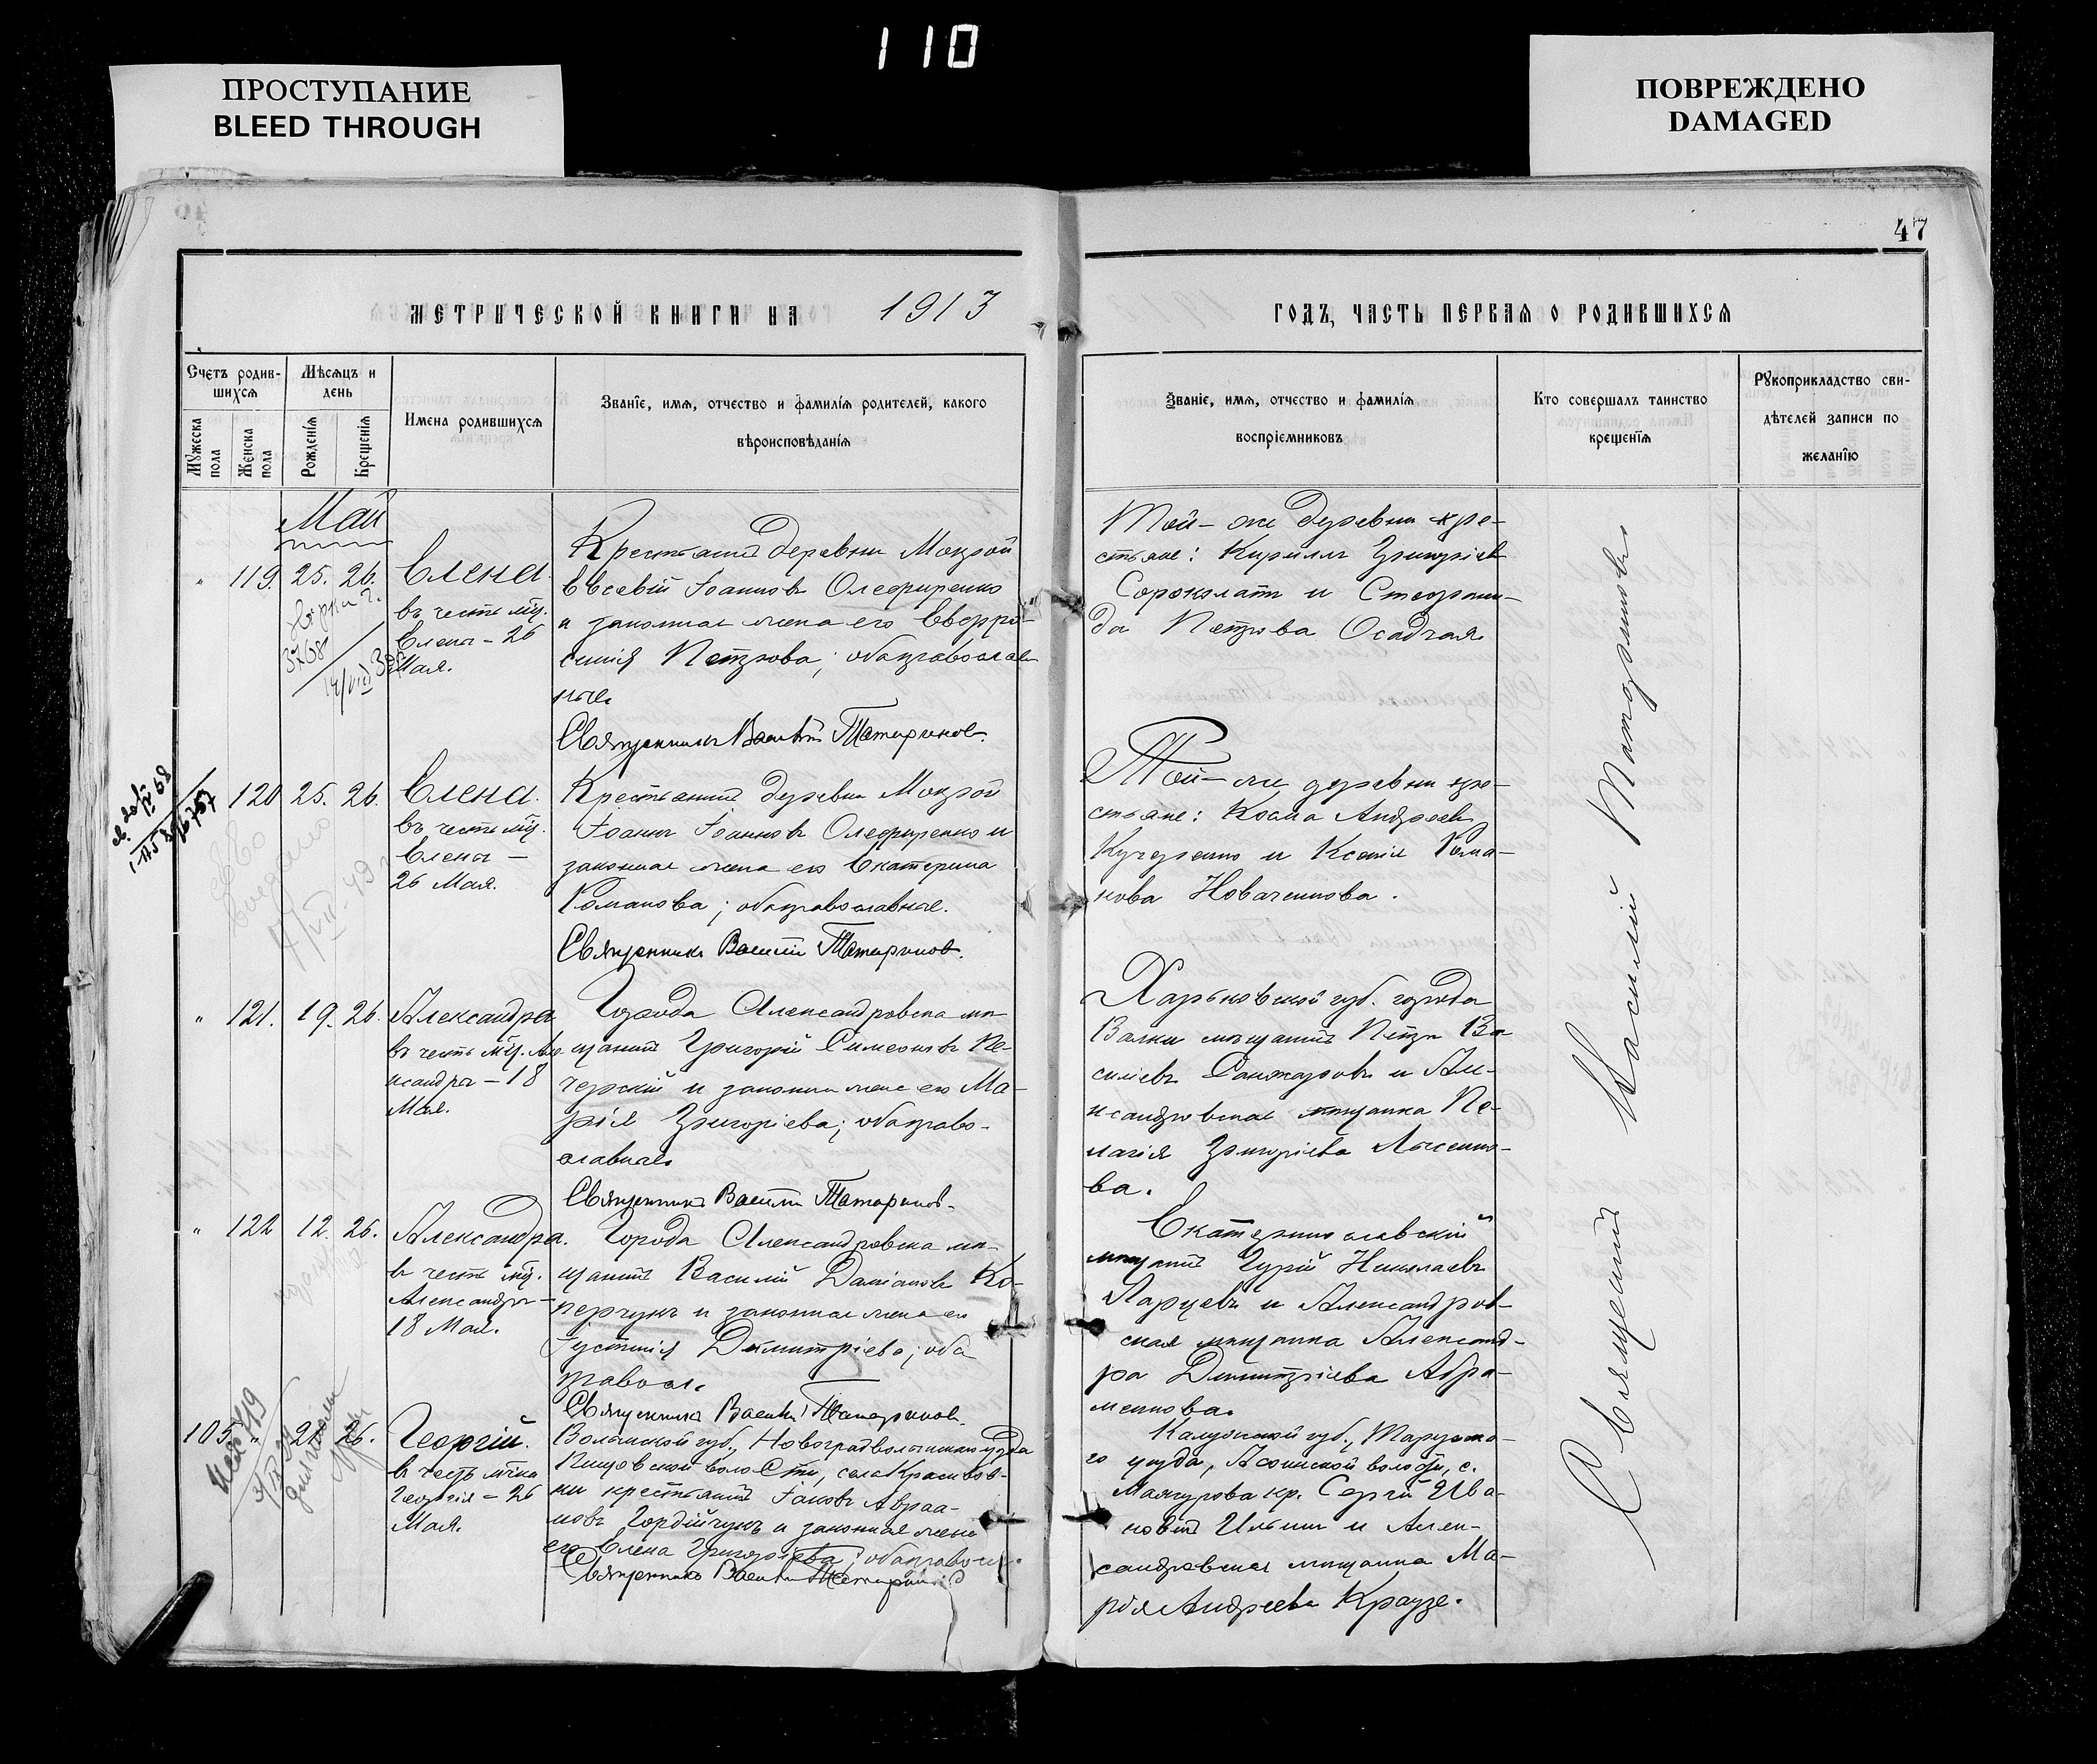 110
ПРОСТУПАНИЕ
BLEED THROUGH
ПОВРЕЖДЕНО
DAMAGED
47
МЕТРИЧЕСКОЙ КНИГИ НА 1913
ГОДЪ, ЧАСТЬ ПЕРВАЯ О РОДИВШИХСЯ
Счетъ родив-
шихся
Мужеска пола
Женска пола
Мѣсяцъ и
день
Рожденія
Крещенія
Имена родившихся
Званіе, имя, отчество и фамилія родителей, какого
вѣроисповѣданія
Званіе, имя, отчество и фамилія
воспріемниковъ
Кто совершалъ таинство
крещенія
Рукоприкладство сви-
дѣтелей записи по
желанію
Май
" 119. 25. 26.
Елена
въ честь мц.
Елены – 26
Мая.
Крестьянинъ деревни Мокрой
Евсевій Іоанновъ Олефиренко
и законная жена его Евфро-
синія Петрова; оба православ
ные.
Священникъ Василій Татариновъ.
Той-же деревни кре-
стьяне: Кириллъ Григоріевъ
Сорокопать и Стефани-
да Петрова Осадчая
120 25. 26.
Елена.
въ честь мц.
Елены –
26 Мая.
Крестьянинъ деревни Мокрой
Іоаннъ Іоанновъ Олефиренко и
законная жена его Екатерина
Романова; оба православные.
Священникъ Василій Татариновъ.
Той-же деревни кре-
стьяне: Косма Андреевъ
Кучеренко и Ксенія Рома-
нова Новаченкова.
" 121. 19. 26.
Александра
въ честь мц. Але
ксандры – 18
Мая.
Города Александровска мѣ-
щанинъ Григорій Симеоновъ Пе-
черскій и законная жена его Ма-
рія Григоріева; оба право-
славные.
Священникъ Василій Татариновъ.
Харьковской губ. города
Валки мѣщанинъ Петръ Ва
силіевъ Санжаровъ и Але-
ксандровская мѣщанка Пе-
лагія Григоріева Лысенко-
ва.
" 122 12. 26.
Александра.
въ честь мц.
Александры –
18 Мая.
Города Александровска мѣ-
щанинъ Василій Даміановъ Ко-
перчукъ и законная жена его
Іустинія Димитріева; оба
правосл.
Священникъ Василій Татариновъ.
Екатеринославскій
мѣщанинъ Гурій Николаевъ
Ларцевъ и Александров-
ская мѣщанка Александ-
ра Димитріева Абра-
менкова.
105 " 21. 26.
Георгій.
въ честь мчка
Георгія – 26
Мая.
Волынской губ., Новоградволынскаго уѣзда
Пищовской волости, села Красиов-
ки крестьянинъ Іаковъ Авраа-
мовъ Гордійчукъ и законная жена
его Елена Григорьева; оба правосл.
Священникъ Василій Татариновъ
Калужской губ., Тарускo-
го уѣзда, волости, с.
кр. Сергій Ива-
новъ Ильинъ и Алек-
сандровская мѣщанка Ма-
рія Андреева Краузе.
Священникъ Василій Татариновъ